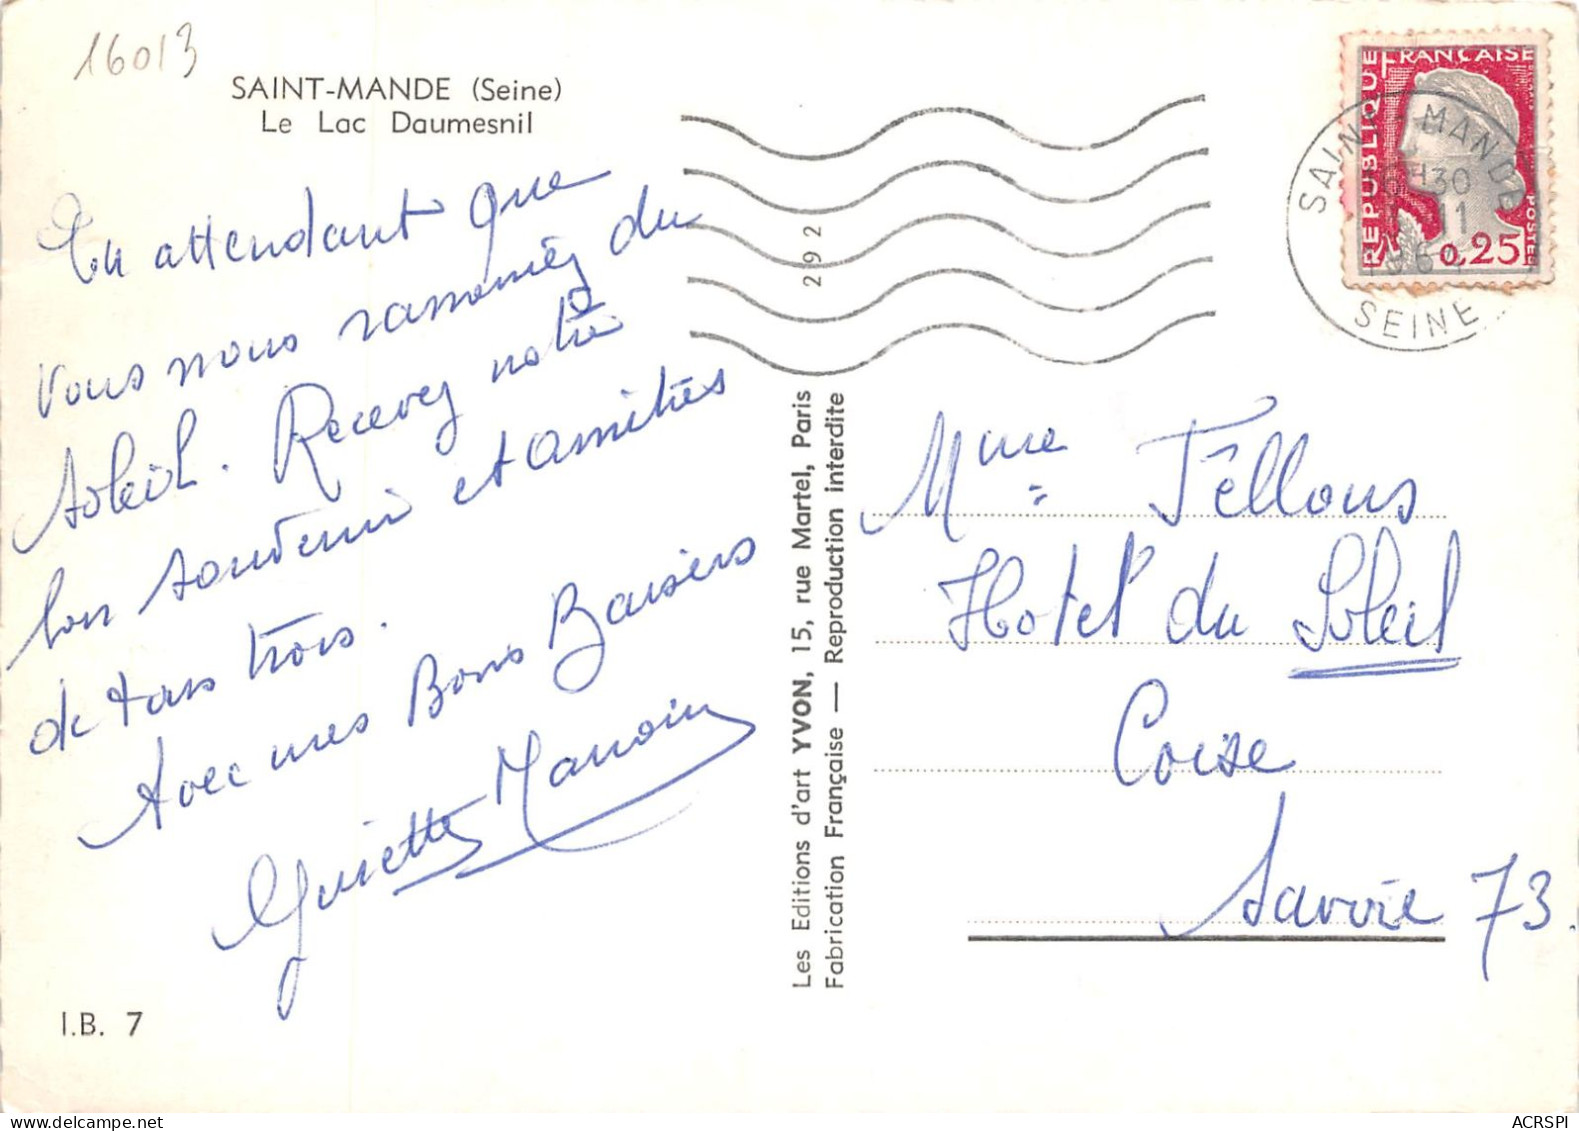 16013
SAINT-MANDE (Seine)
Le Lac Daumesnil
En attendant que
vous nous rameniez du
soleil. Recevez notre
bon souvenir et amitiés
de tous trois.
Avec mes Bons Baisers
I.B. 7
292
Les Editions d'art YVON, 15, rue Martel, Paris
Fabrication Française — Reproduction interdite
REPUBLIQUE FRANÇAISE
POSTES
0,25
SAINT-MANDE
30
11
SEINE
Mme Fellous
Hotel du Soleil
Corse
Savoie 73.
ACRSPI